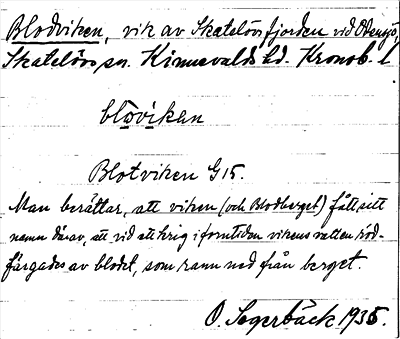 Blodviken, vik av Skatelövsfjorden vid Odensjö,
Skatelövs sn. Kinnevalds hd. Kronob. l
bloviken
Blotviken G 15.
Man berättar, att viken (och Blodberget) fått sitt
namn därav, att vid ett krig i forntiden vikens vatten röd-
färgades av blodet, som rann ned från berget.
O. Segerbäck 1935.